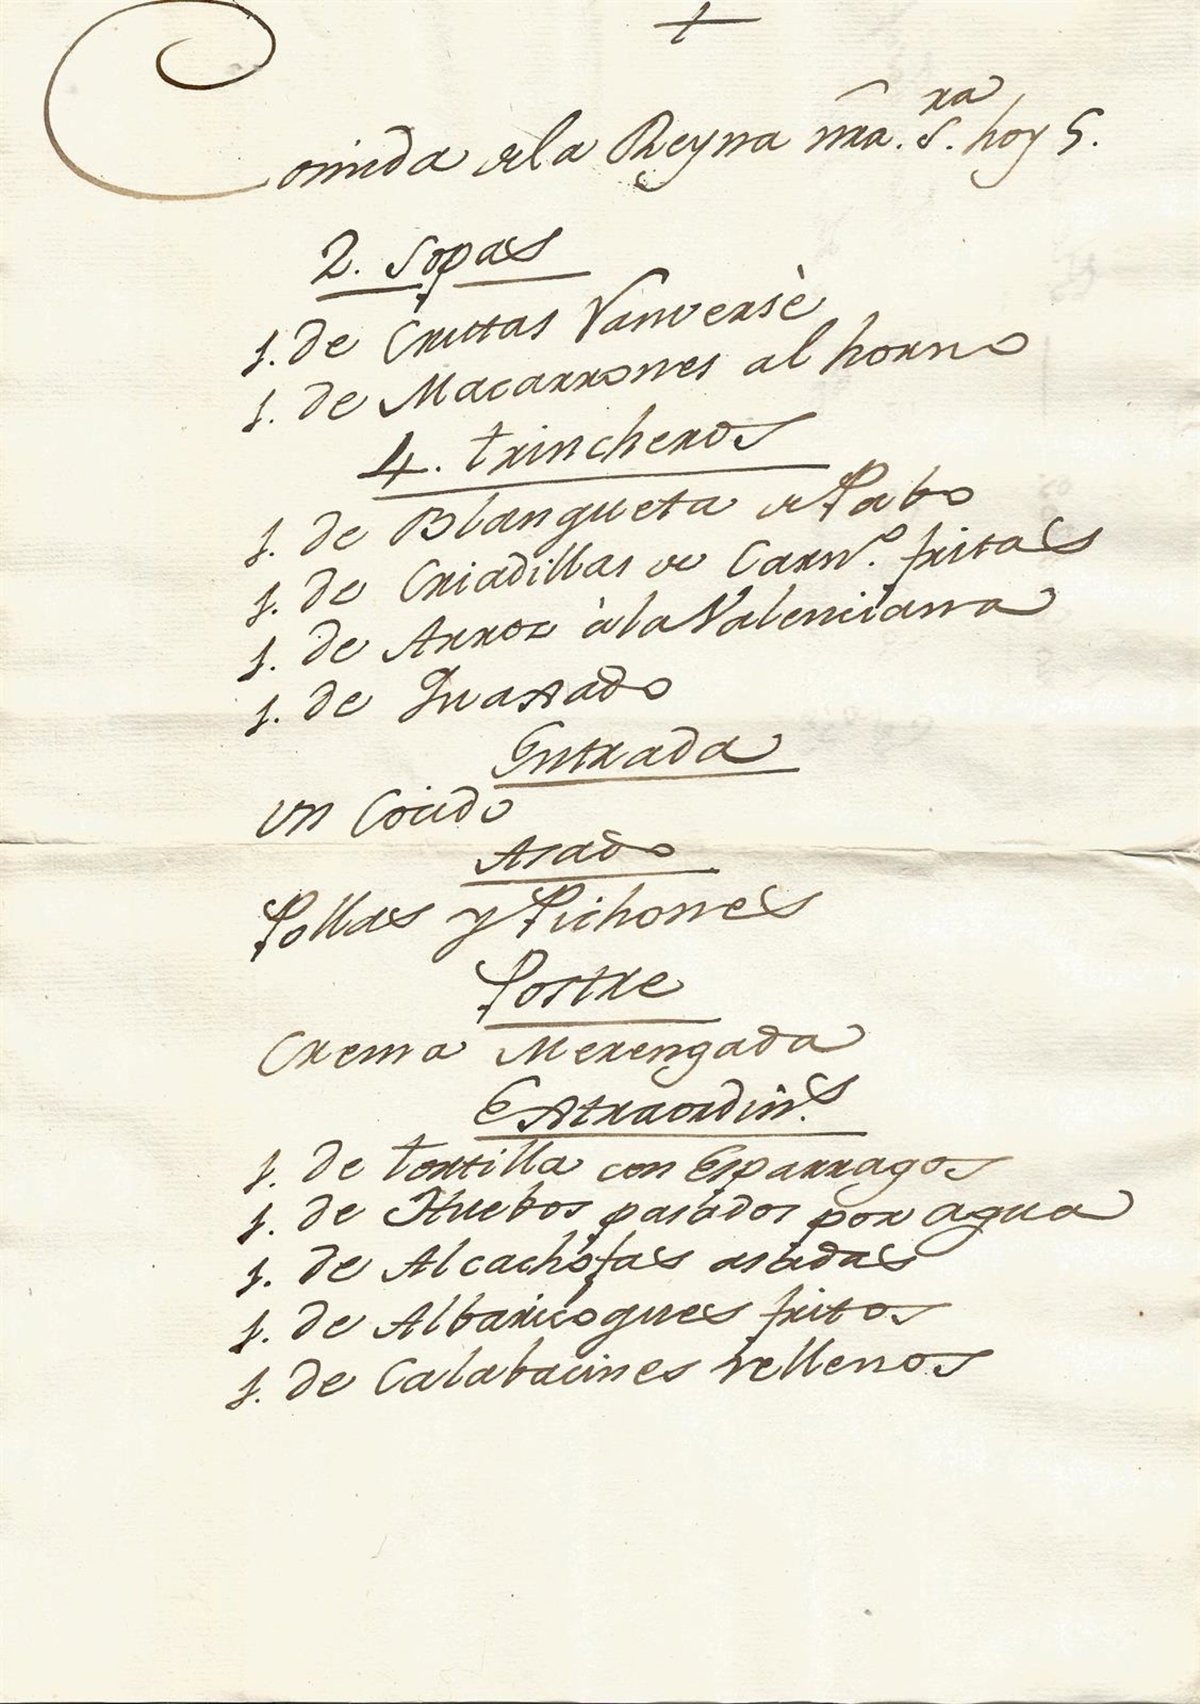 +
Comida de la Reyna nra. S.ra hoy 5.
2. Sopas
1. de Crutas Vanversè
1. de Macarrones al horno
4. trincheros
1. de Blangueta de Pabo
1. de Criadillas de Carn.o fritas
1. de Arroz à la Valenciana
1. de Guasado
Entrada
un Cocido
Asado
Pollas y Pichones
Postre
Crema Merengada
Extraordin.s
1. de tortilla con Esparragos
1. de Huebos pasados por agua
1. de Alcachofas asadas
1. de Albaricoques fritos
1. de Calabacines rellenos